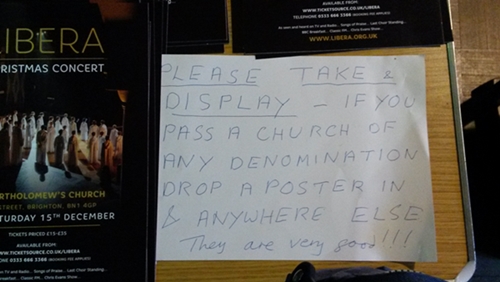 LIBERA
CHRISTMAS CONCERT
BARTHOLOMEW'S CHURCH
STREET, BRIGHTON, BN1 4GP
SATURDAY 15TH DECEMBER
TICKETS PRICED £15-£35
AVAILABLE FROM
WWW.TICKETSOURCE.CO.UK/LIBERA
PHONE 0333 666 3388 (BOOKING FEE APPLIES)
as on TV and Radio... Songs of Praise... Last Choir Standing...
Breakfast... Classic FM... Chris Evans Show...
AVAILABLE FROM
WWW.TICKETSOURCE.CO.UK/LIBERA
TELEPHONE 0333 666 3388 (BOOKING FEE APPLIES)
As seen and heard on TV and Radio... Songs of Praise... Last Choir Standing...
BBC Breakfast... Classic FM... Chris Evans Show...
WWW.LIBERA.ORG.UK
PLEASE TAKE &
DISPLAY - IF YOU
PASS A CHURCH OF
ANY DENOMINATION
DROP A POSTER IN
& ANYWHERE ELSE
They are very good!!!